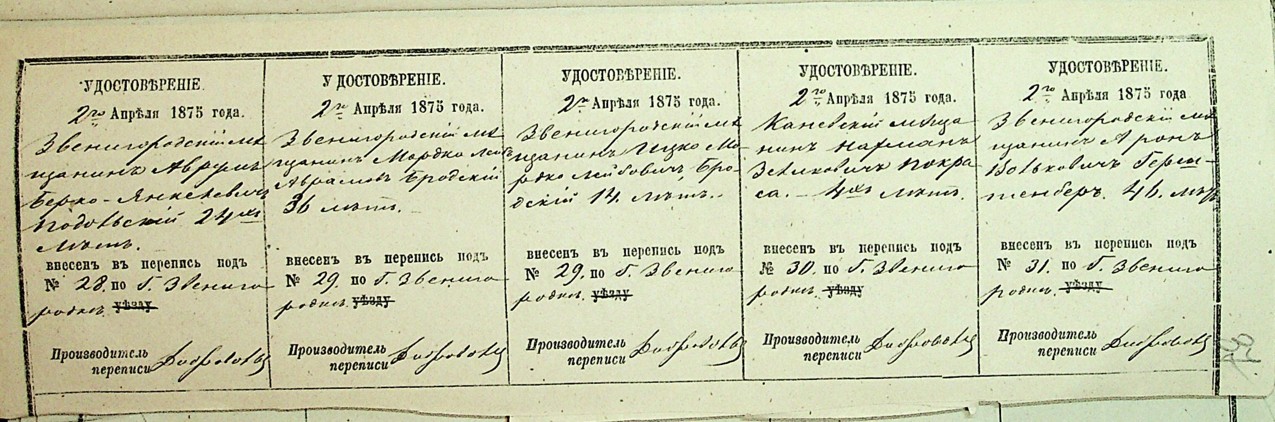 УДОСТОВѢРЕНІЕ.
2го Апрѣля 1875 года.
Звенигородскій мѣ
щанинъ Аврумъ
Берко-Янкелевичъ
Подольскій 24хъ
лѣтъ.
внесенъ въ перепись подъ
№ 28. по г. Звениго
родкѣ. уѣзду
Производитель
переписи
УДОСТОВѢРЕНІЕ.
2го Апрѣля 1875 года.
Звенигородскій мѣ
щанинъ Мордко Лейб
Аврамовъ Бродскій
36 лѣтъ.
внесенъ въ перепись подъ
№ 29. по г. Звениго
родкѣ. уѣзду
Производитель
переписи
УДОСТОВѢРЕНІЕ.
2го Апрѣля 1875 года.
Звенигородскій мѣ
щанинъ Ицко Мо
рдко Лейбовичъ Бро
дскій 14. лѣтъ.
внесенъ въ перепись подъ
№ 29. по г. Звениго
родкѣ. уѣзду
Производитель
переписи
УДОСТОВѢРЕНІЕ.
2го Апрѣля 1875 года.
Каневскій мѣща
нинъ Нахманъ
Зельковичъ Покра
са. 4хъ лѣтъ.
внесенъ въ перепись подъ
№ 30. по г. Звениго
родкѣ. уѣзду
Производитель
переписи
УДОСТОВѢРЕНІЕ.
2го Апрѣля 1875 года
Звенигородскій мѣ
щанинъ Аронъ
Вольковичъ Герш-
тенберъ. 46. лѣтъ
внесенъ въ перепись подъ
№ 31. по г. Звениго
родкѣ. уѣзду
Производитель
переписи